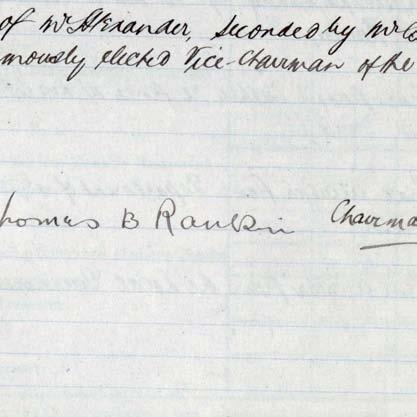 of Mr Alexander, seconded by Mr
mously elected Vice-Chairman of the
homas B Rankin Chairma